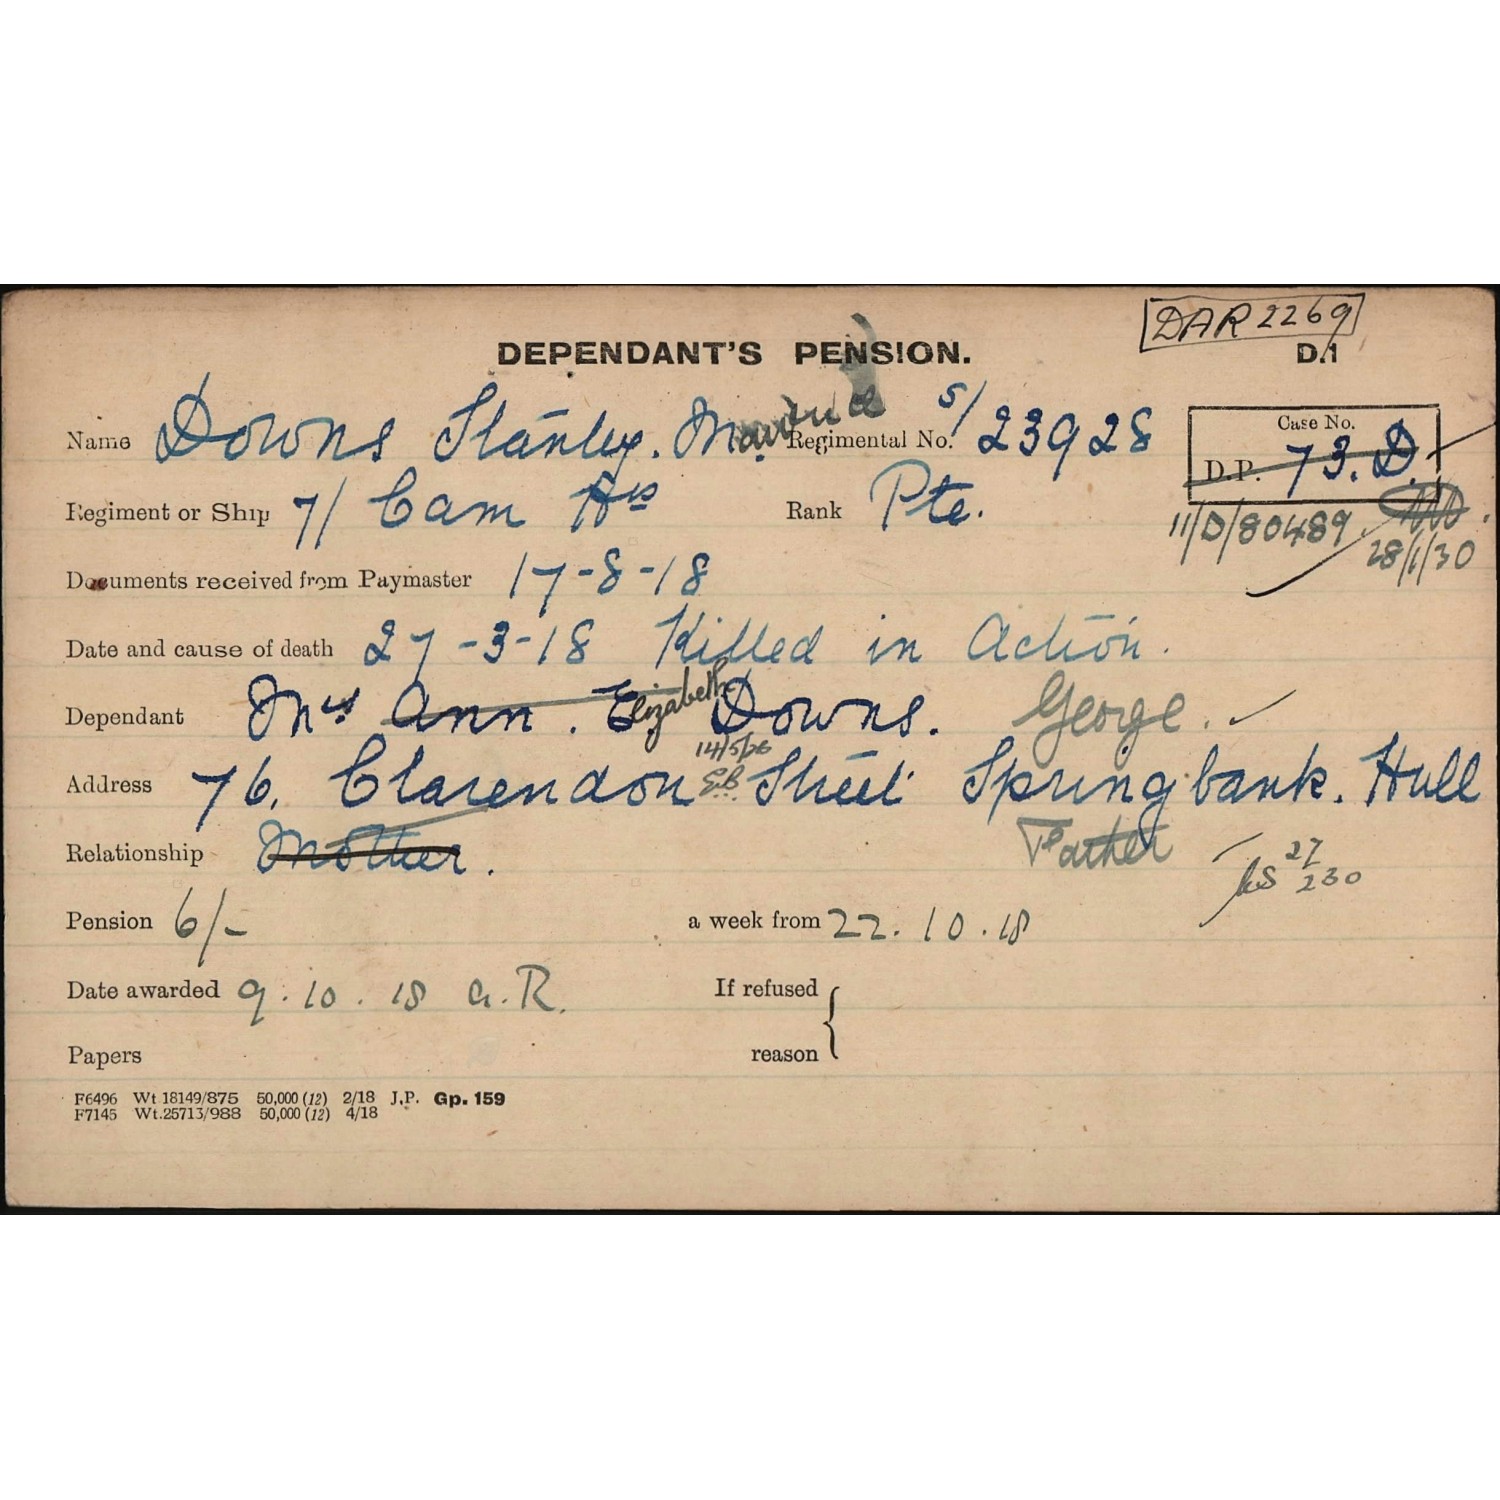 DAR 2269
DEPENDANT'S PENSION. D.1
Name Downs Stanley. Regimental No. S/23928
Case No.
D.P. 73. D
Regiment or Ship 7/ Cam Hrs Rank Pte.
11/D/80489
28/1/30
Documents received from Paymaster 17-8-18
Date and cause of death 27-3-18 Killed in Action.
Dependant Mrs Ann. Elizabeth Downs. George.
14/5/26
Address 76, Clarendon Street Springbank. Hull
EB
Relationship Mother. Father
27
230
Pension 6/- a week from 22.10.18
Date awarded 9.10.18 a.R. If refused
Papers reason
F6496 Wt 18149/875 50,000 (12) 2/18 J.P. Gp. 159
F7145 Wt.25713/988 50,000 (12) 4/18